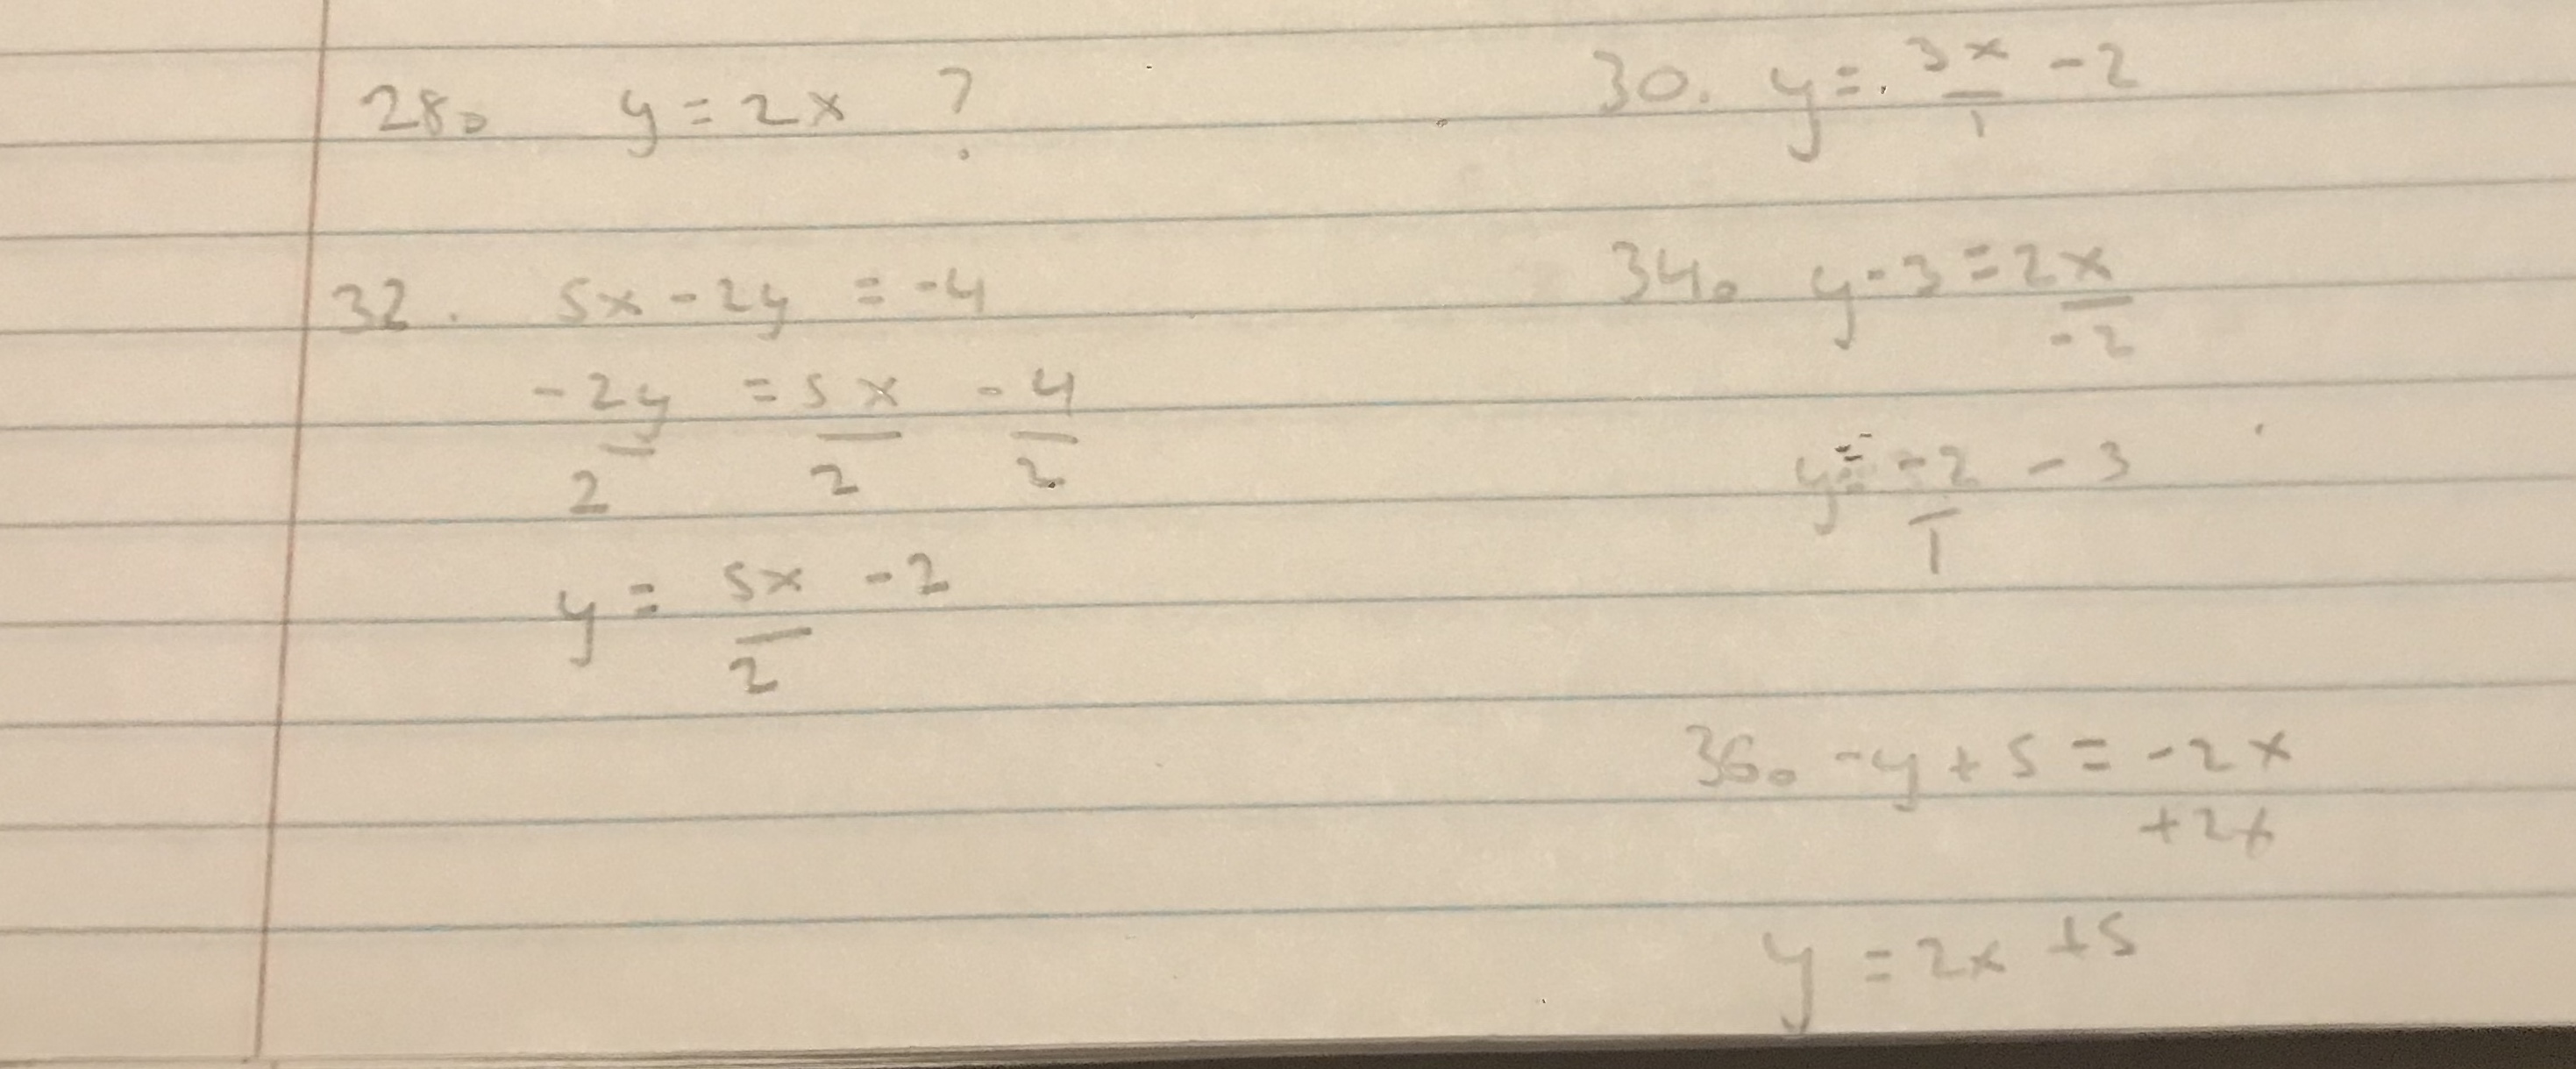 28. y = 2x ?
30. y = 3x/1 - 2
32. 5x - 2y = -4
-2y/2 = 5x/2 - 4/2
y = 5x/2 - 2
34. y - 3 = 2x
-2
y = -2/1 - 3
36. -y + 5 = -2x
+2x
y = 2x + 5